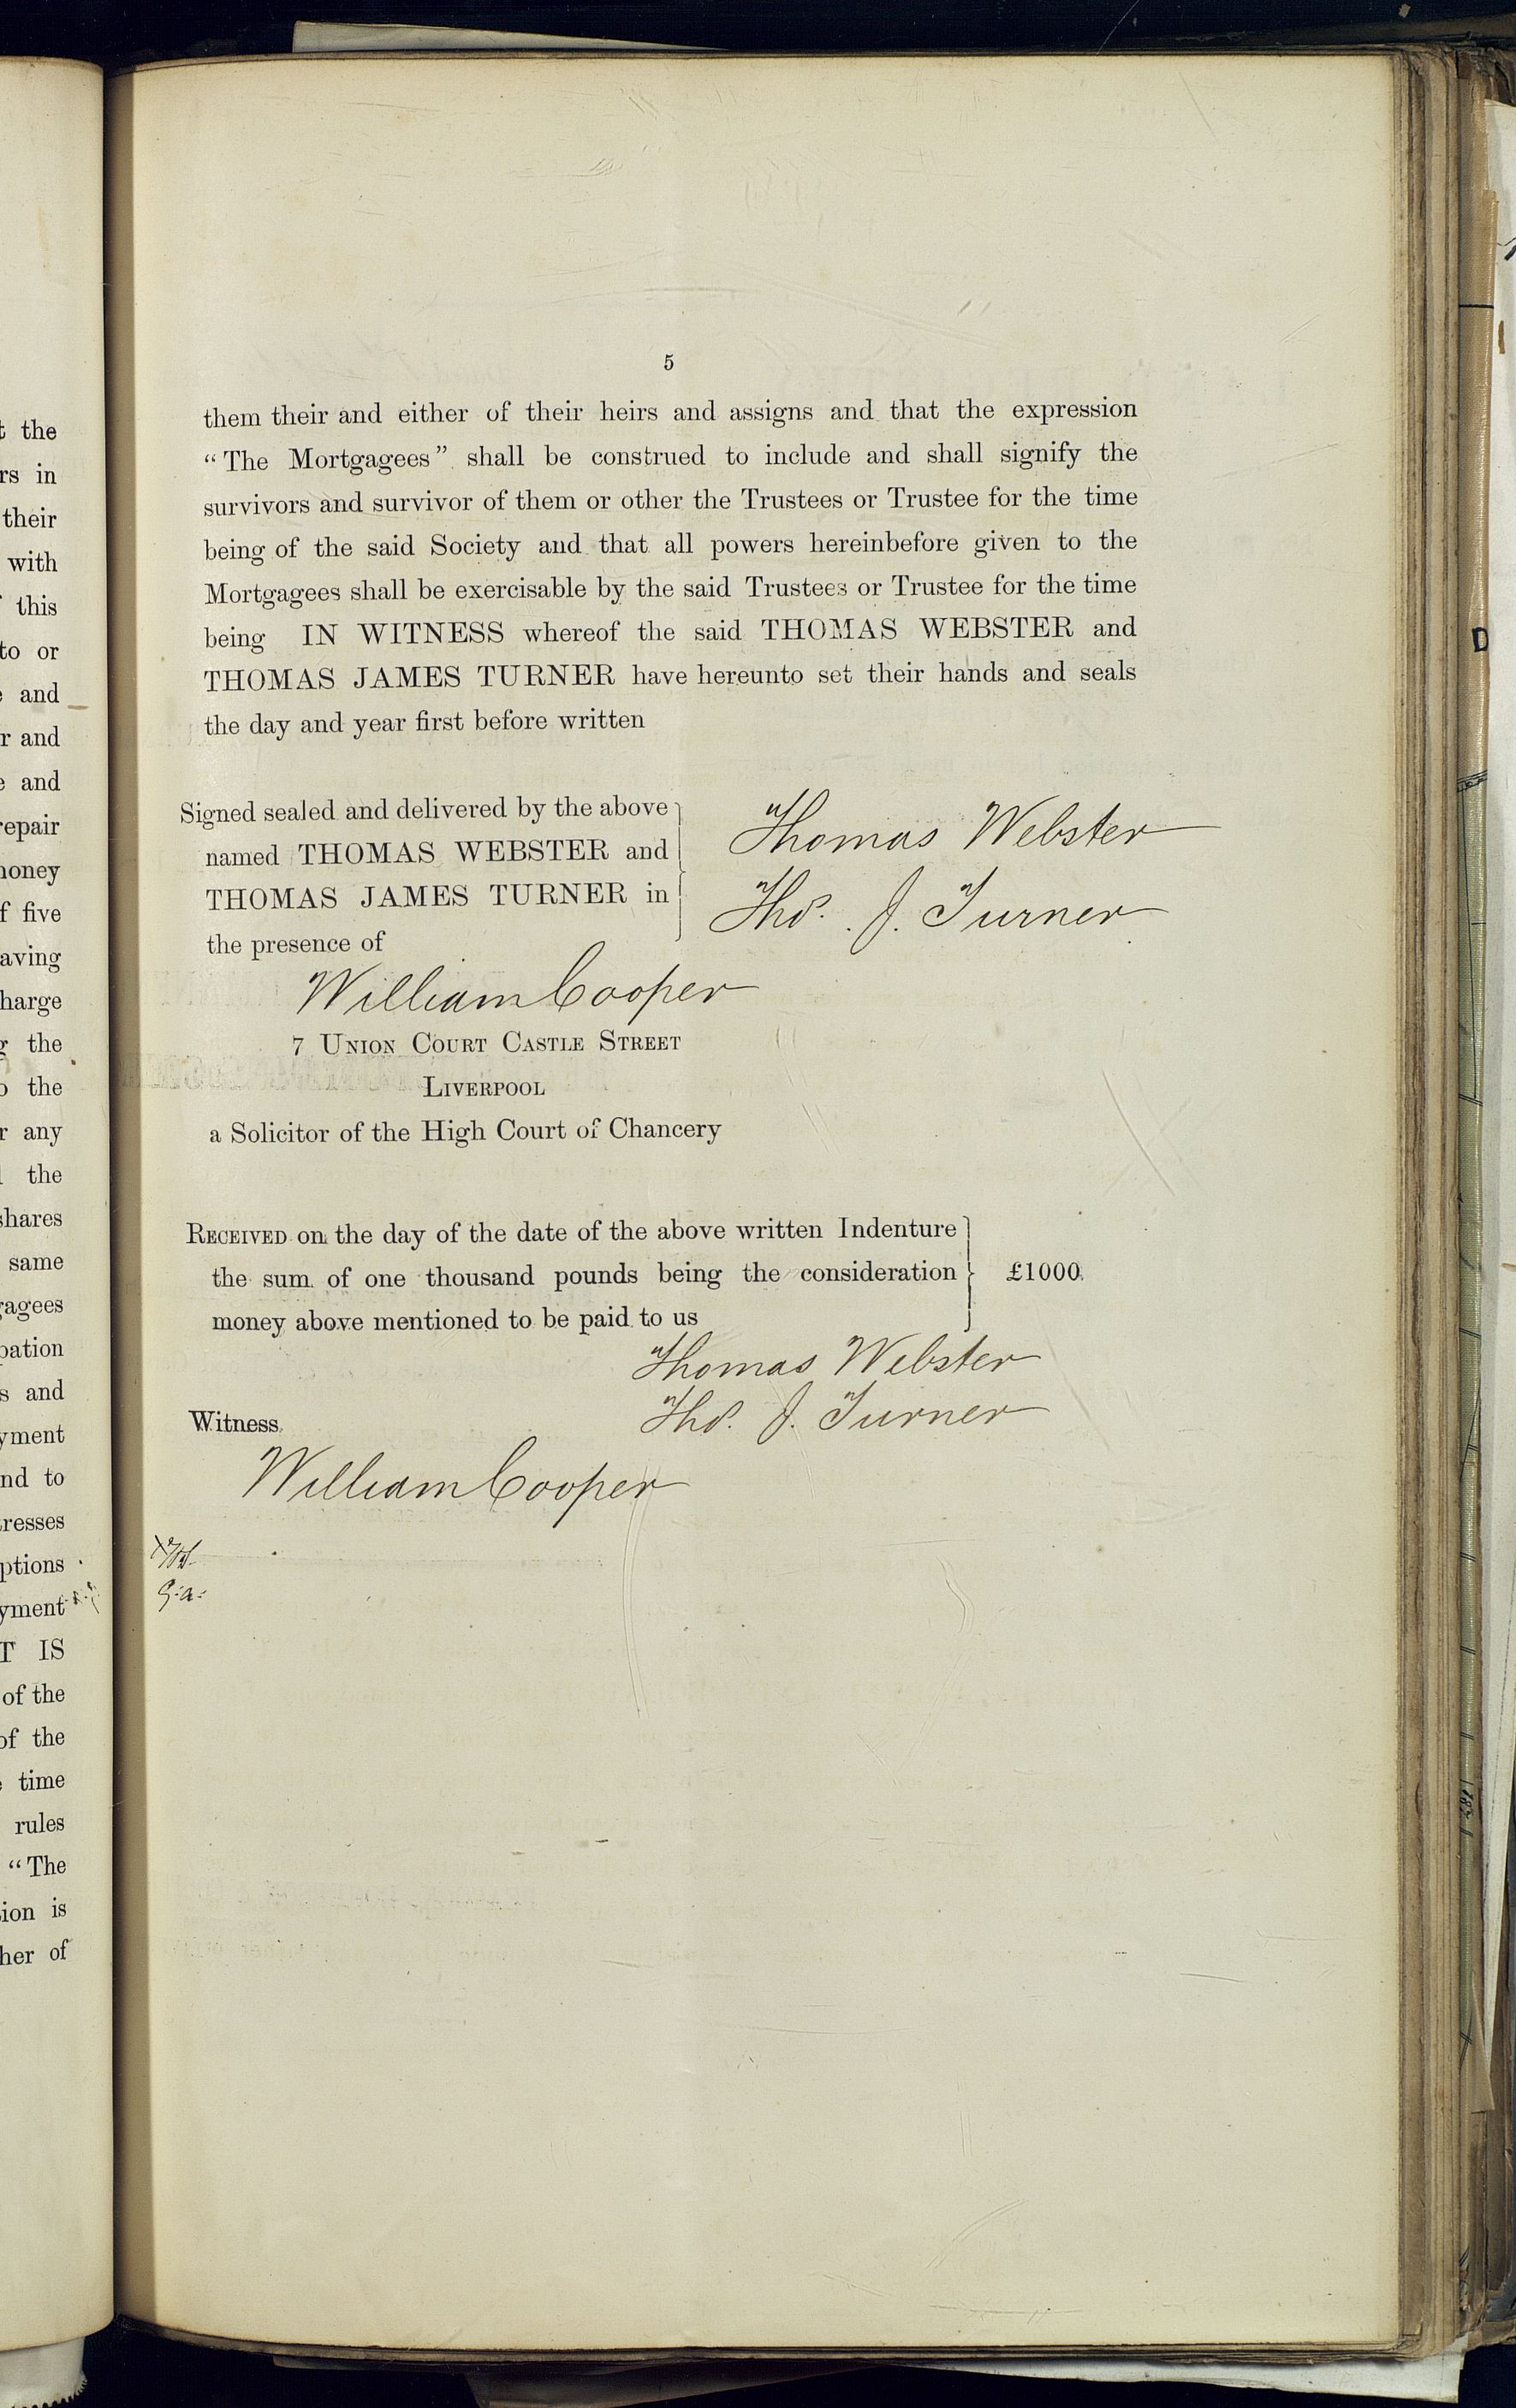 5
them their and either of their heirs and assigns and that the expression
“The Mortgagees” shall be construed to include and shall signify the
survivors and survivor of them or other the Trustees or Trustee for the time
being of the said Society and that all powers hereinbefore given to the
Mortgagees shall be exercisable by the said Trustees or Trustee for the time
being IN WITNESS whereof the said THOMAS WEBSTER and
THOMAS JAMES TURNER have hereunto set their hands and seals
the day and year first before written
Signed sealed and delivered by the above
named THOMAS WEBSTER and
THOMAS JAMES TURNER in
the presence of
Thomas Webster
Thos. J. Turner
William Cooper
7 UNION COURT CASTLE STREET
LIVERPOOL
a Solicitor of the High Court of Chancery
RECEIVED on the day of the date of the above written Indenture
the sum of one thousand pounds being the consideration £1000.
money above mentioned to be paid to us
Thomas Webster
Thos. J. Turner
Witness
William Cooper
t the
rs in
their
with
this
to or
and
r and
and
repair
money
f five
aving
harge
the
the
r any
the
shares
same
gagees
pation
s and
yment
nd to
resses
ptions
yment
T IS
of the
of the
time
rules
“The
ion is
her of